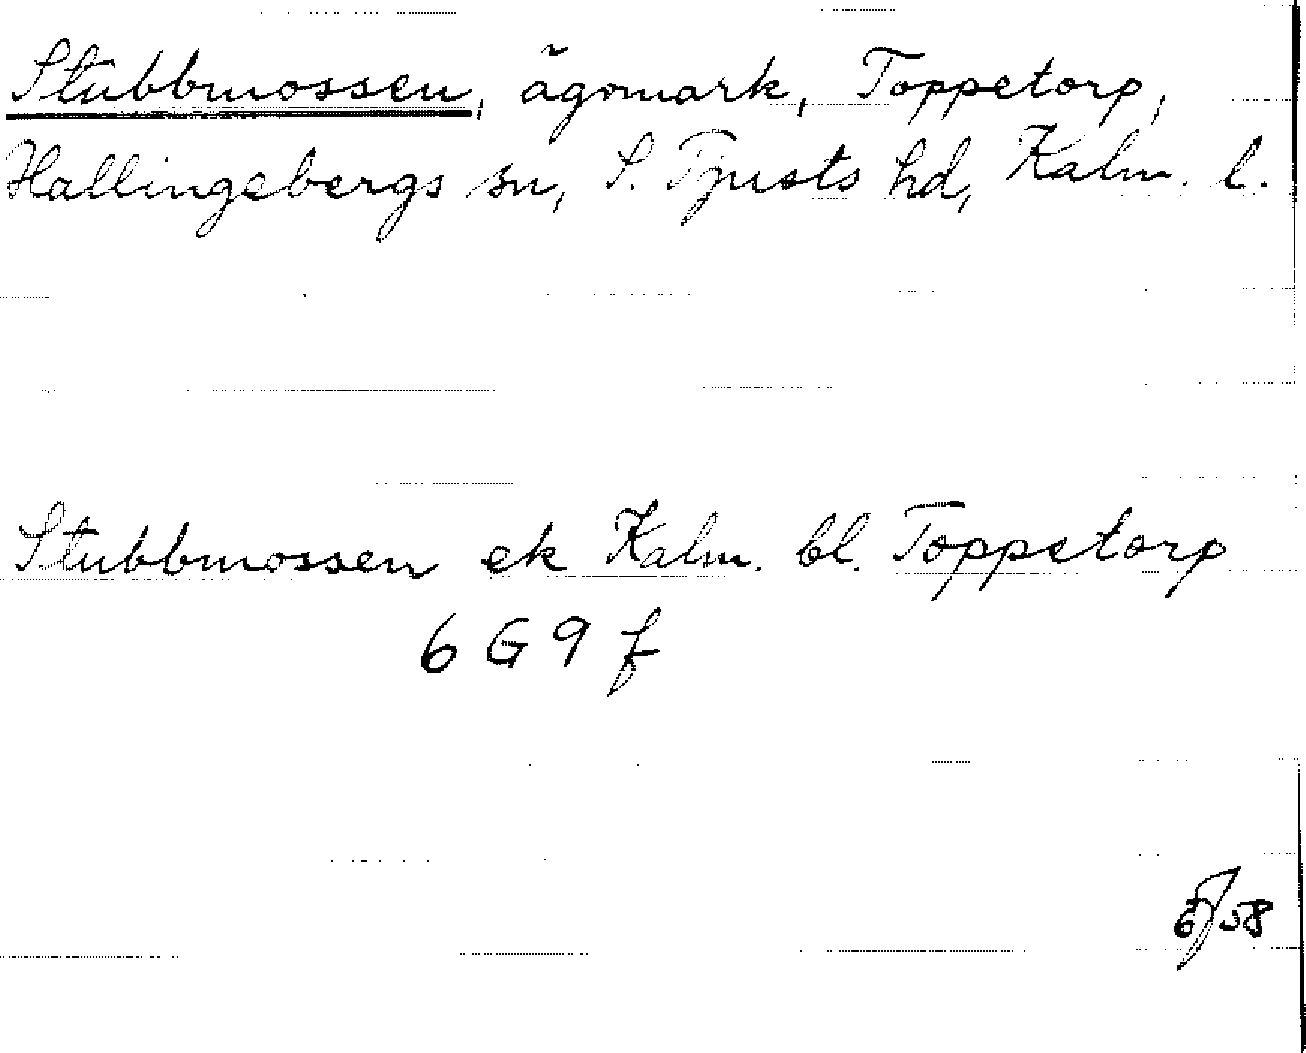 Stubbmossen, ägomark, Toppetorp,
Hallingebergs sn, S. Tjusts hd, Kalm. l.
Stubbmossen ek Kalm. bl. Toppetorp
6 G 9 f